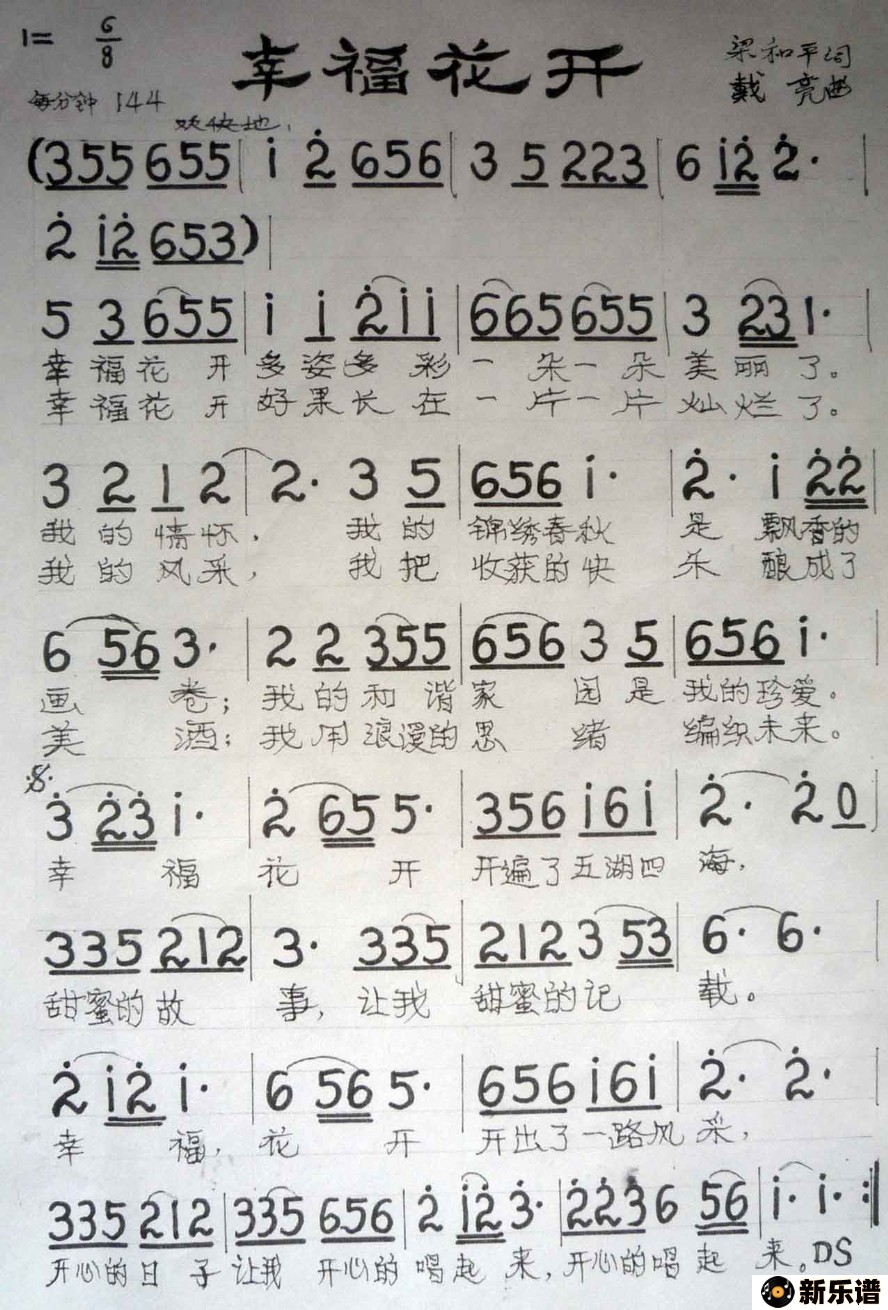 1= 6/8
幸福花开
梁和平词
戴亮曲
每分钟 144
欢快地
(355 655 | i̇ 2̇ 656 | 3 5 223 | 6 i̇2̇ 2̇· |
2̇ i̇2̇ 653) |
5 3 655 | i̇ i̇ 2̇i̇i̇ | 665 655 | 3 231· |
幸福花开多姿多彩一朵一朵美丽了。
幸福花开好果长在一片一片灿烂了。
3 2 1 2 | 2· 3 5 | 656 i̇· | 2̇· i̇ 2̇2̇ |
我的情怀, 我的锦绣春秋是飘香的
我的风采, 我把收获的快乐酿成了
6 56 3· | 2 2 355 | 656 3 5 | 656 i̇· |
画卷; 我的和谐家园是我的珍爱。
美酒; 我用浪漫的思绪编织未来。
𝄋
3̇ 2̇3̇ i̇· | 2̇ 65 5· | 356 i̇6i̇ | 2̇· 2̇ 0 |
幸福花开开遍了五湖四海,
335 212 | 3· 335 | 212 3 53 | 6· 6· |
甜蜜的故事, 让我甜蜜的记载。
2̇ i̇2̇ i̇· | 6 56 5· | 656 i̇6i̇ | 2̇· 2̇· |
幸福, 花开开出了一路风采,
335 212 | 335 656 | 2̇ i̇2̇ 3̇· | 2̇2̇3̇ 6 56 | i̇· i̇· :‖
开心的日子让我开心的唱起来, 开心的唱起来。DS
新乐谱